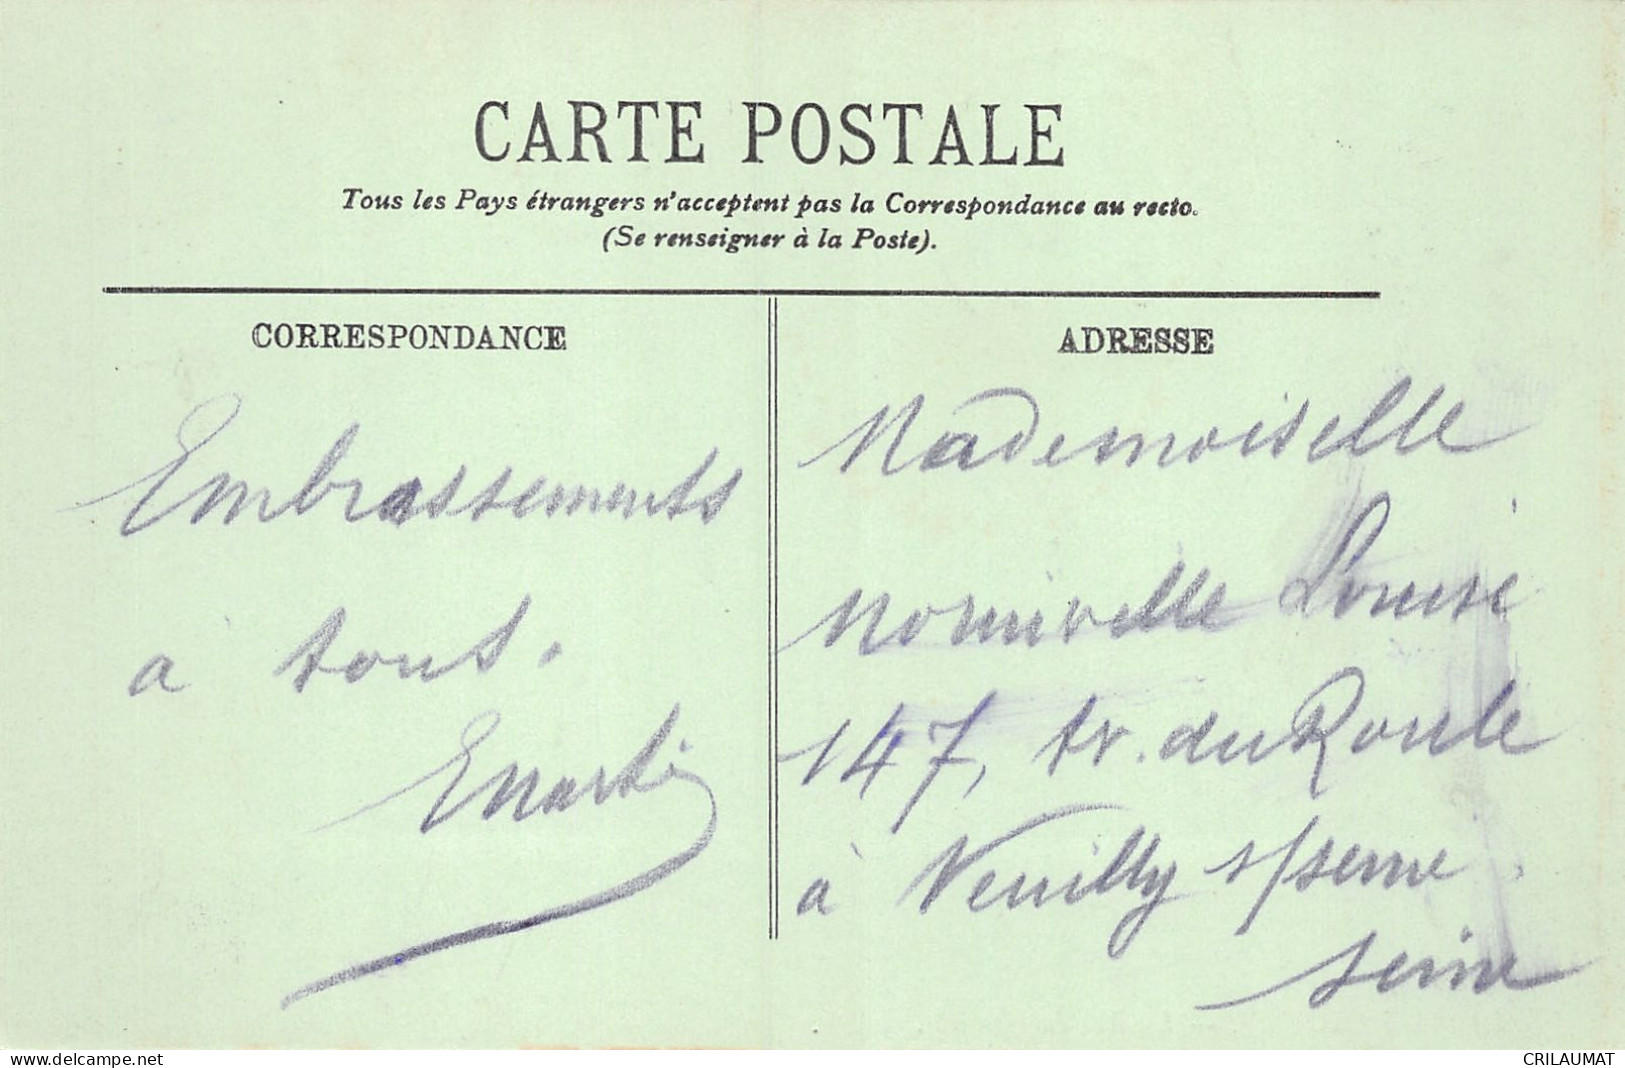 CARTE POSTALE
Tous les Pays étrangers n'acceptent pas la Correspondance au recto.
(Se renseigner à la Poste).
CORRESPONDANCE
Embrassements
à tous.
ADRESSE
Mademoiselle
Louise
147, av. du Roule
à Neuilly s/seine
seine
www.delcampe.net
CRILAUMAT